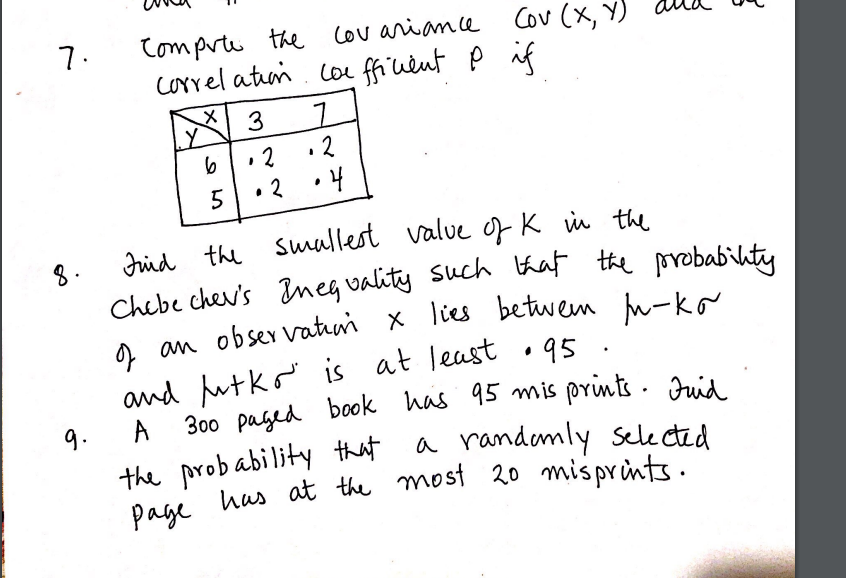 7. Compute the covariance Cov (X, Y) and
correlation coefficient ρ if
X 3 7
Y
6 .2 .2
5 .2 .4
8. Find the smallest value of K in the
Chebechev's Inequality such that the probability
of an observation x lies between μ-kσ
and μ+kσ is at least .95 .
9. A 300 paged book has 95 misprints. Find
the probability that a randomly selected
page has at the most 20 misprints.